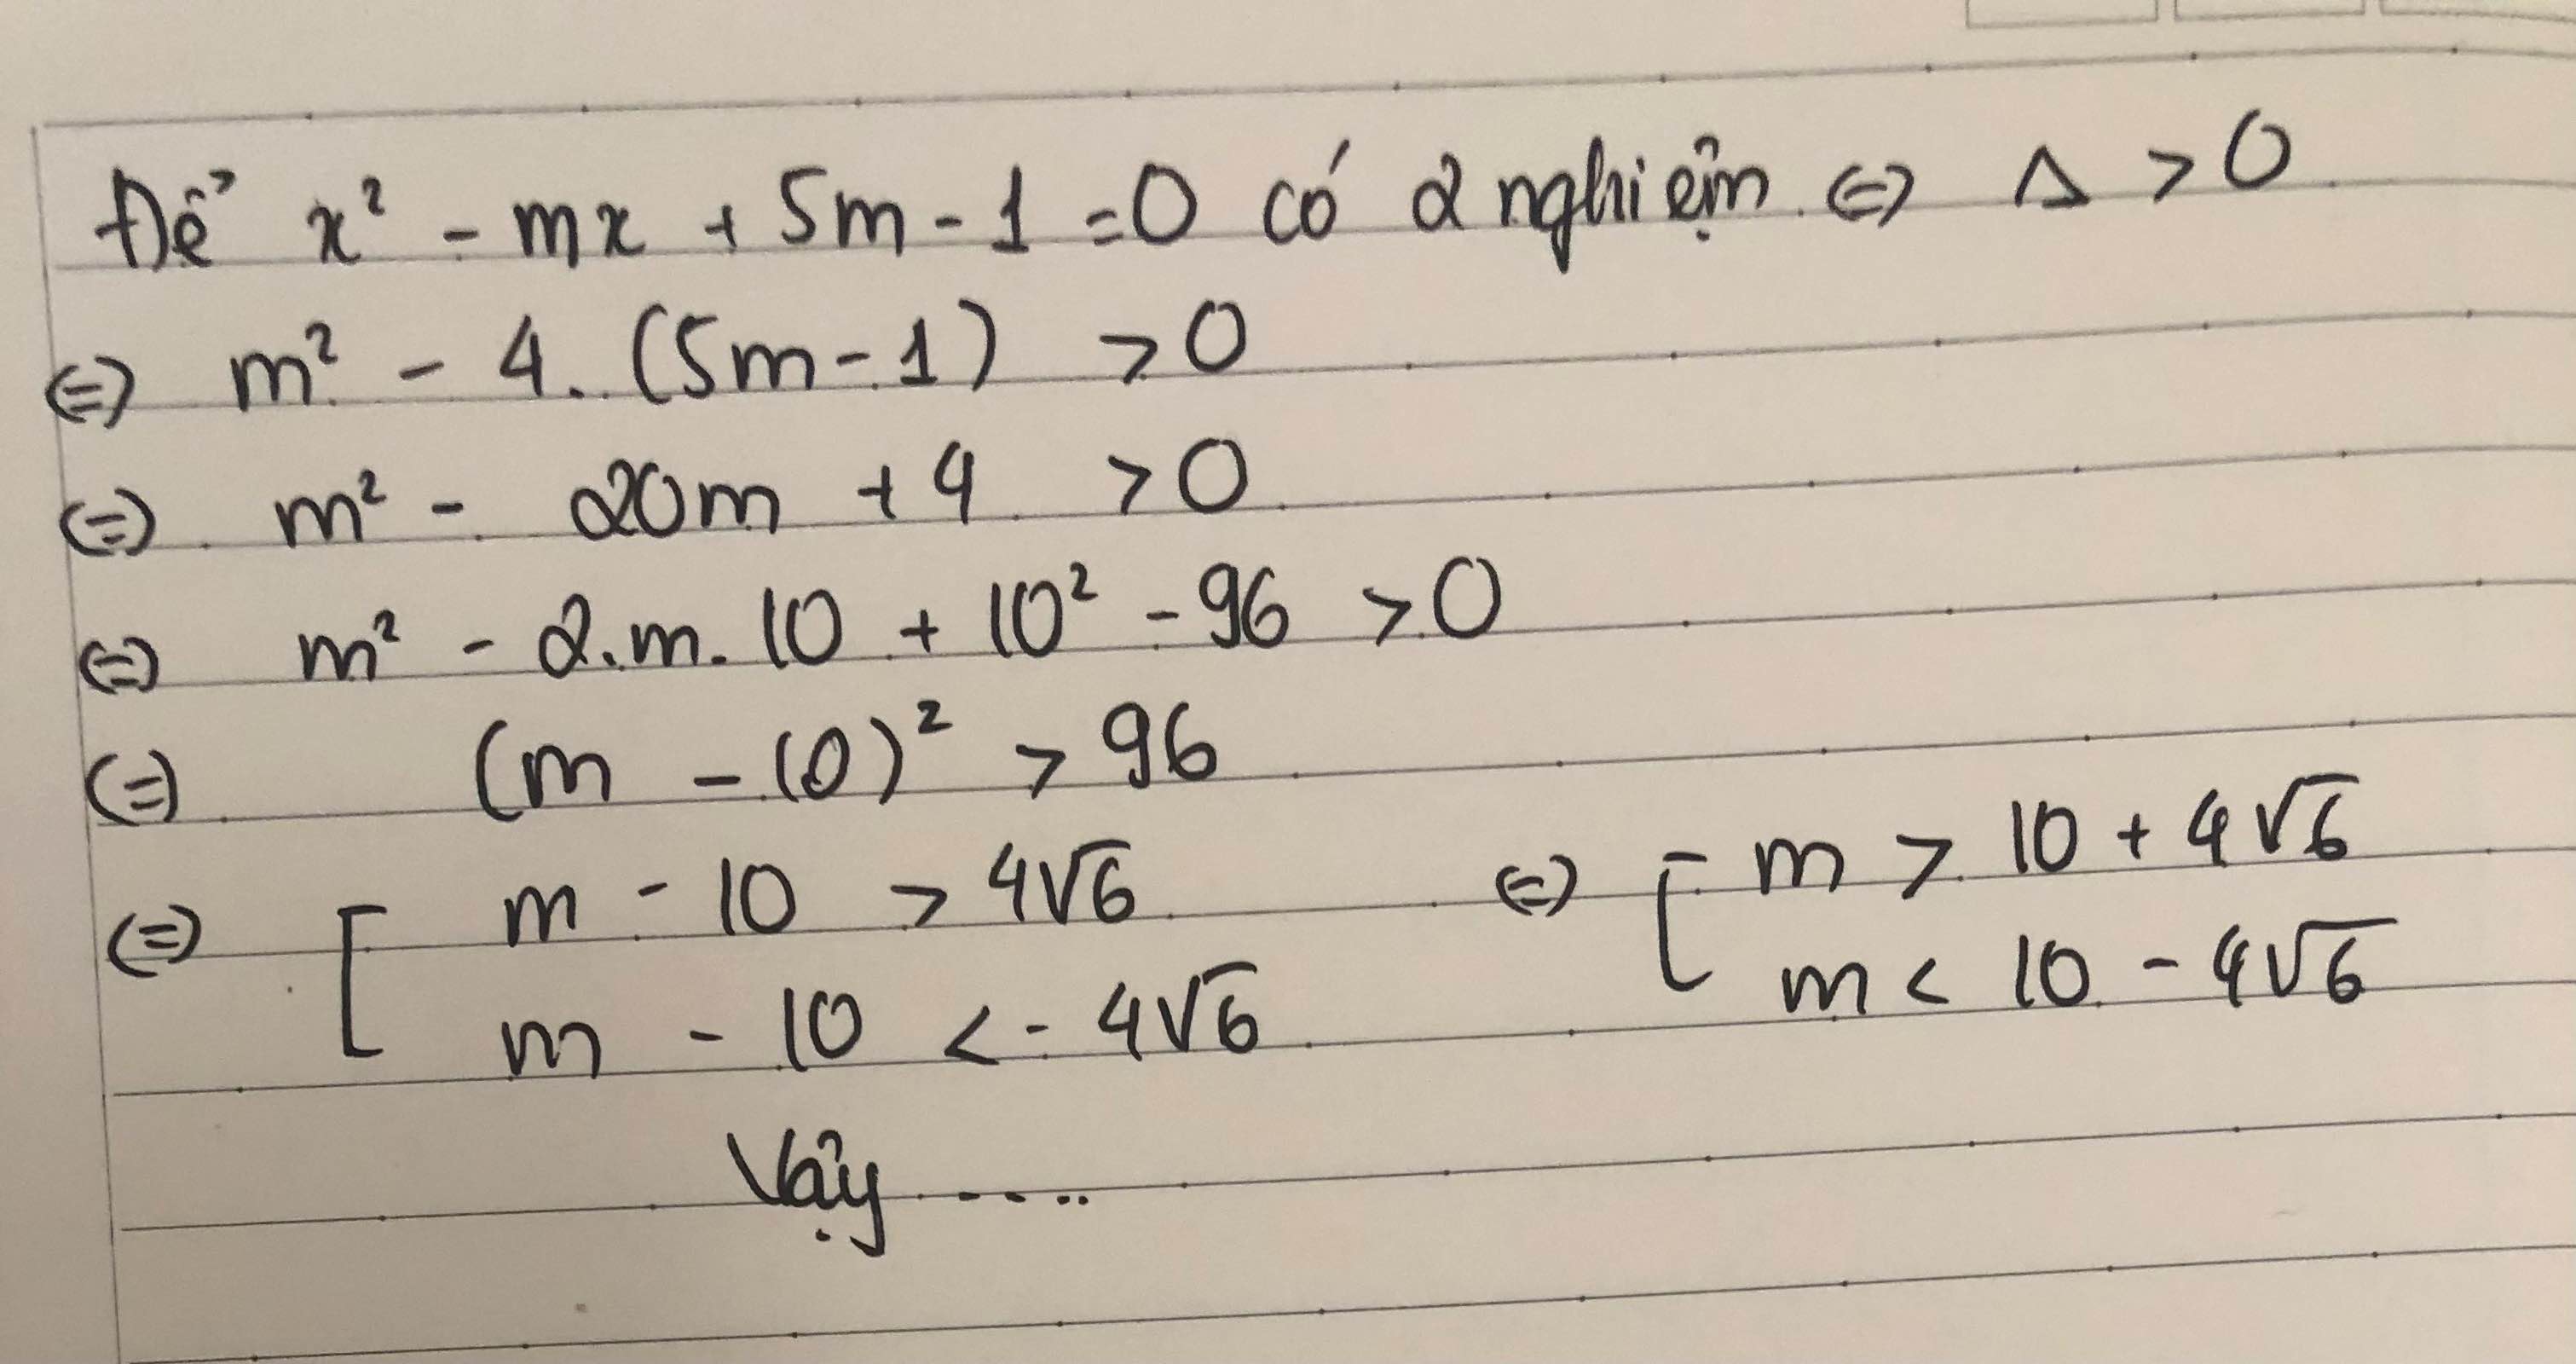 Để x² - mx + 5m - 1 = 0 có 2 nghiệm ⇔ Δ > 0
⇔ m² - 4. (5m - 1) > 0
⇔ m² - 20m + 4 > 0
⇔ m² - 2.m.10 + 10² - 96 > 0
⇔ (m - 10)² > 96
⇔ [ m - 10 > 4√6 ⇔ [ m > 10 + 4√6
m - 10 < - 4√6 m < 10 - 4√6
Vậy .....